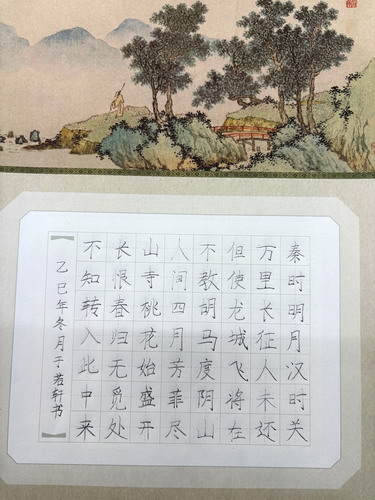 秦时明月汉时关
万里长征人未还
但使龙城飞将在
不教胡马度阴山
人间四月芳菲尽
山寺桃花始盛开
长恨春归无觅处
不知转入此中来
乙巳年冬月于若轩书